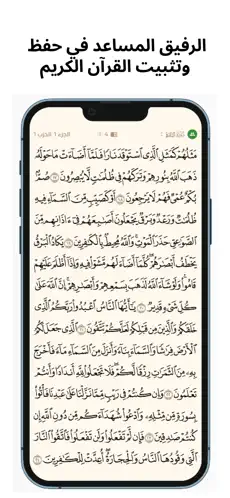 الرفيق المساعد في حفظ
وتثبيت القرآن الكريم
الجزء 1 الحزب 1
مَثَلُهُمْ كَمَثَلِ ٱلَّذِى ٱسْتَوْقَدَ نَارًا فَلَمَّآ أَضَآءَتْ مَا حَوْلَهُۥ
ذَهَبَ ٱللَّهُ بِنُورِهِمْ وَتَرَكَهُمْ فِى ظُلُمَٰتٍ لَّا يُبْصِرُونَ ١٧ صُمٌّۢ
بُكْمٌ عُمْىٌ فَهُمْ لَا يَرْجِعُونَ ١٨ أَوْ كَصَيِّبٍ مِّنَ ٱلسَّمَآءِ فِيهِ
ظُلُمَٰتٌ وَرَعْدٌ وَبَرْقٌ يَجْعَلُونَ أَصَٰبِعَهُمْ فِىٓ ءَاذَانِهِم مِّنَ
ٱلصَّوَٰعِقِ حَذَرَ ٱلْمَوْتِ وَٱللَّهُ مُحِيطٌۢ بِٱلْكَٰفِرِينَ ١٩ يَكَادُ ٱلْبَرْقُ
يَخْطَفُ أَبْصَٰرَهُمْ كُلَّمَآ أَضَآءَ لَهُم مَّشَوْا۟ فِيهِ وَإِذَآ أَظْلَمَ عَلَيْهِمْ
قَامُوا۟ وَلَوْ شَآءَ ٱللَّهُ لَذَهَبَ بِسَمْعِهِمْ وَأَبْصَٰرِهِمْ إِنَّ ٱللَّهَ عَلَىٰ
كُلِّ شَىْءٍ قَدِيرٌ ٢٠ يَٰٓأَيُّهَا ٱلنَّاسُ ٱعْبُدُوا۟ رَبَّكُمُ ٱلَّذِى
خَلَقَكُمْ وَٱلَّذِينَ مِن قَبْلِكُمْ لَعَلَّكُمْ تَتَّقُونَ ٢١ ٱلَّذِى جَعَلَ لَكُمُ
ٱلْأَرْضَ فِرَٰشًا وَٱلسَّمَآءَ بِنَآءً وَأَنزَلَ مِنَ ٱلسَّمَآءِ مَآءً فَأَخْرَجَ
بِهِۦ مِنَ ٱلثَّمَرَٰتِ رِزْقًا لَّكُمْ فَلَا تَجْعَلُوا۟ لِلَّهِ أَندَادًا وَأَنتُمْ
تَعْلَمُونَ ٢٢ وَإِن كُنتُمْ فِى رَيْبٍ مِّمَّا نَزَّلْنَا عَلَىٰ عَبْدِنَا فَأْتُوا۟
بِسُورَةٍ مِّن مِّثْلِهِۦ وَٱدْعُوا۟ شُهَدَآءَكُم مِّن دُونِ ٱللَّهِ إِن
كُنتُمْ صَٰدِقِينَ ٢٣ فَإِن لَّمْ تَفْعَلُوا۟ وَلَن تَفْعَلُوا۟ فَٱتَّقُوا۟ ٱلنَّارَ
ٱلَّتِى وَقُودُهَا ٱلنَّاسُ وَٱلْحِجَارَةُ أُعِدَّتْ لِلْكَٰفِرِينَ ٢٤